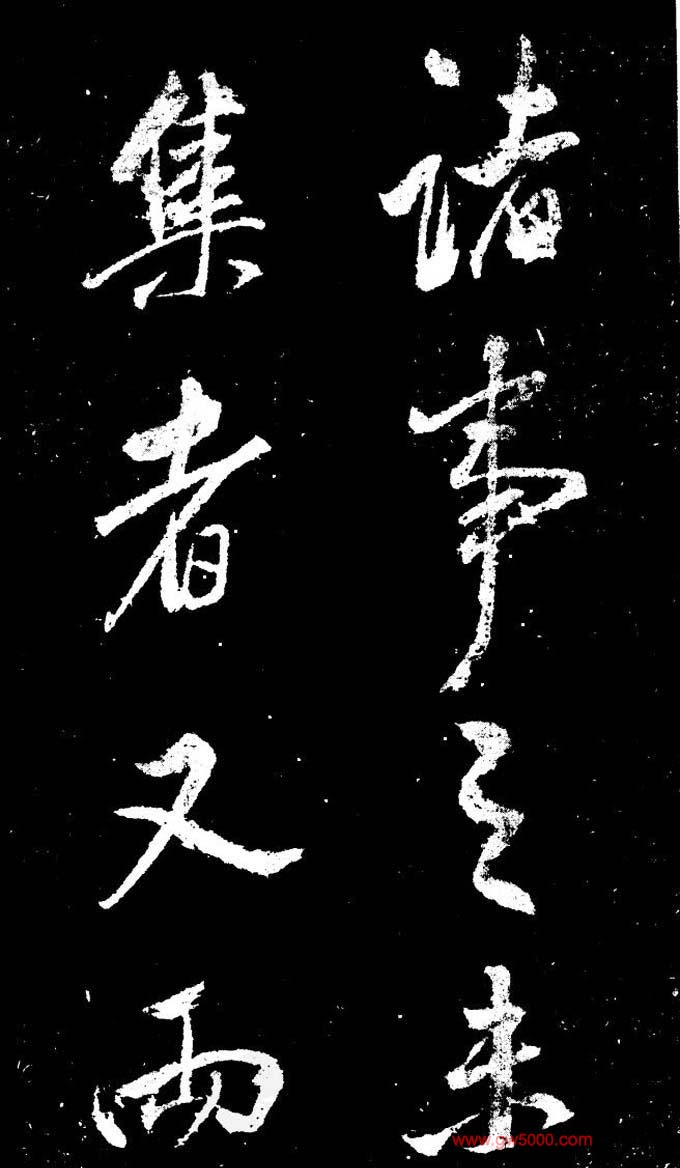 諸事之未
集者又兩
www.gw5000.com